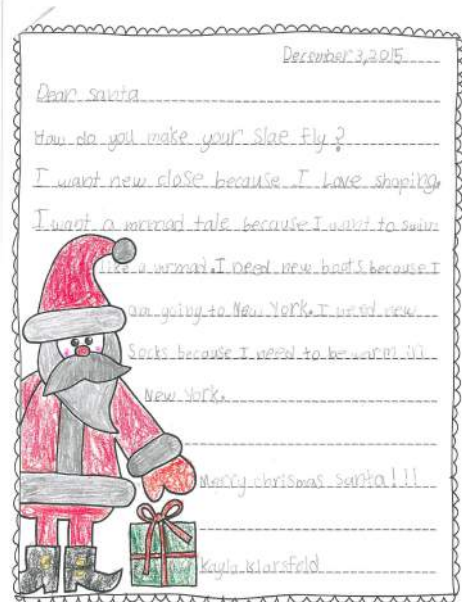 December 3, 2015
Dear santa
How do you make your slae fly?
I want new close because I Love shoping.
I want a mrmad tale because I want to swim
like a mrmad. I need new boots because I
am going to New York. I need new
Socks because I need to be warm in
New York.
Merry chrismas santa!!!
Kayla Klarsfeld